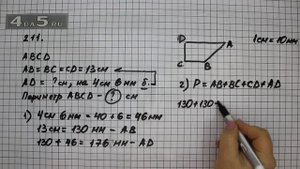 4da5.ru
211.
ABCD
AB = BC = CD = 13 см
AD = ? см, на 4 см 6 мм б.
Периметр ABCD - ? см
1) 4 см 6 мм = 40 + 6 = 46 мм
13 см = 130 мм - AB
130 + 46 = 176 мм - AD
D
A
C
B
1 см = 10 мм
2) P = AB + BC + CD + AD
130 + 130 +